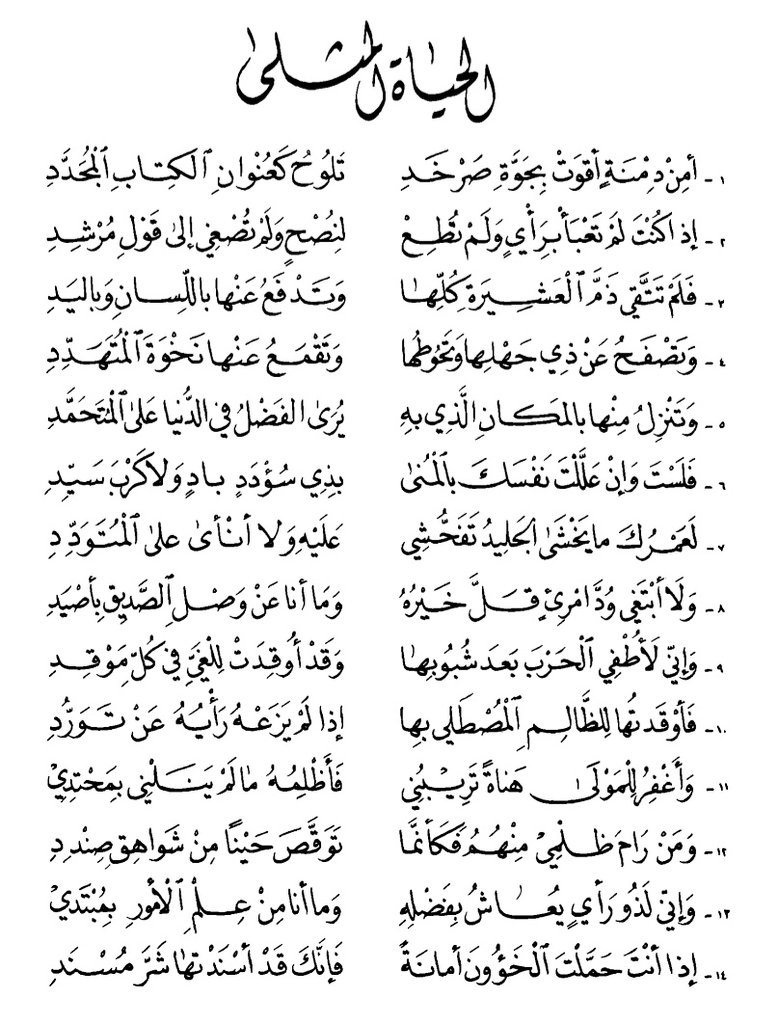 الحياة المثلى
١- أمِنْ دِمْنَةٍ أقوَتْ بِجَوَّةِ صَرْخَدِ تَلُوحُ كَعُنْوانِ ٱلكِتابِ ٱلْمُجَدَّدِ
٢- إذا كُنْتَ لَمْ تَعْبَأْ بِرَأْيٍ وَلَمْ تُطِعْ لِنُصْحٍ وَلَمْ تُصْغي إلى قَوْلِ مُرْشِدِ
٣- فَلَمْ تَتَّقي ذَمَّ ٱلْعَشِيرَةِ كُلِّها وَتَدْفَعُ عَنْها باللّسانِ وَباليَدِ
٤- وَتَصْفَحُ عَنْ ذِي جَهْلِها وَتَحُوطُها وَتَقْمَعُ عَنْها نَخْوَةَ ٱلْمُتَهَدِّدِ
٥- وَتَنْزِلُ مِنْها بالمَكانِ الَّذِي بِهِ يُرَى الفَضْلُ في الدُّنيا عَلى ٱلْمُتَحَمَّدِ
٦- فَلَسْتَ وَإنْ عَلَّلْتَ نَفْسَكَ بٱلْمُنى بِذِي سُؤْدَدٍ بادٍ وَلا كَرْبَ سَيّدِ
٧- لَعَمْرُكَ ما يَخْشَى ٱلجَليدُ تَفَحُّشِي عَلَيْهِ وَلا أنْأى على ٱلْمُتَوَدِّدِ
٨- وَلا أبْتَغي وُدَّ امْرِئٍ قَلَّ خَيْرُهُ وَما أنا عَنْ وَصْلِ ٱلصَّدِيقِ بأصْيَدِ
٩- وَإنّي لَأُطْفِي ٱلْحَرْبَ بَعدَ شُبُوبِها وَقَدْ أُوقِدَتْ لِلْغَيِّ في كُلِّ مَوْقِدِ
١٠- فَأوْقَدتُها لِلظَّالِمِ ٱلْمُصْطَلي بِها إذا لَمْ يَزَعْهُ رَأْيُهُ عَنْ تَوَرُّدِ
١١- وَأغْفِرُ لِلمَوْلَى هَناةً تَرِيبُنِي فَأَظْلِمُهُ ما لَمْ يَنَلْني بِمَحْتِدِيْ
١٢- وَمَنْ رَامَ ظلْمِيْ مِنْهُمُ فَكَأنَّما تَوَقَّصَ حَيْناً مِنْ شَواهِقِ صِنْدِدِ
١٣- وَإنّي لَذُو رَأيٍ يُعاشُ بِفَضْلِهِ وَما أنا مِنْ عِلْمِ ٱلْأمُورِ بِمُبْتَدِيْ
١٤- إذا أنْتَ حَمَّلْتَ ٱلْخَؤُونَ أمانَةً فَإنَّكَ قَدْ أسْنَدْتَها شَرَّ مُسْنَدِ